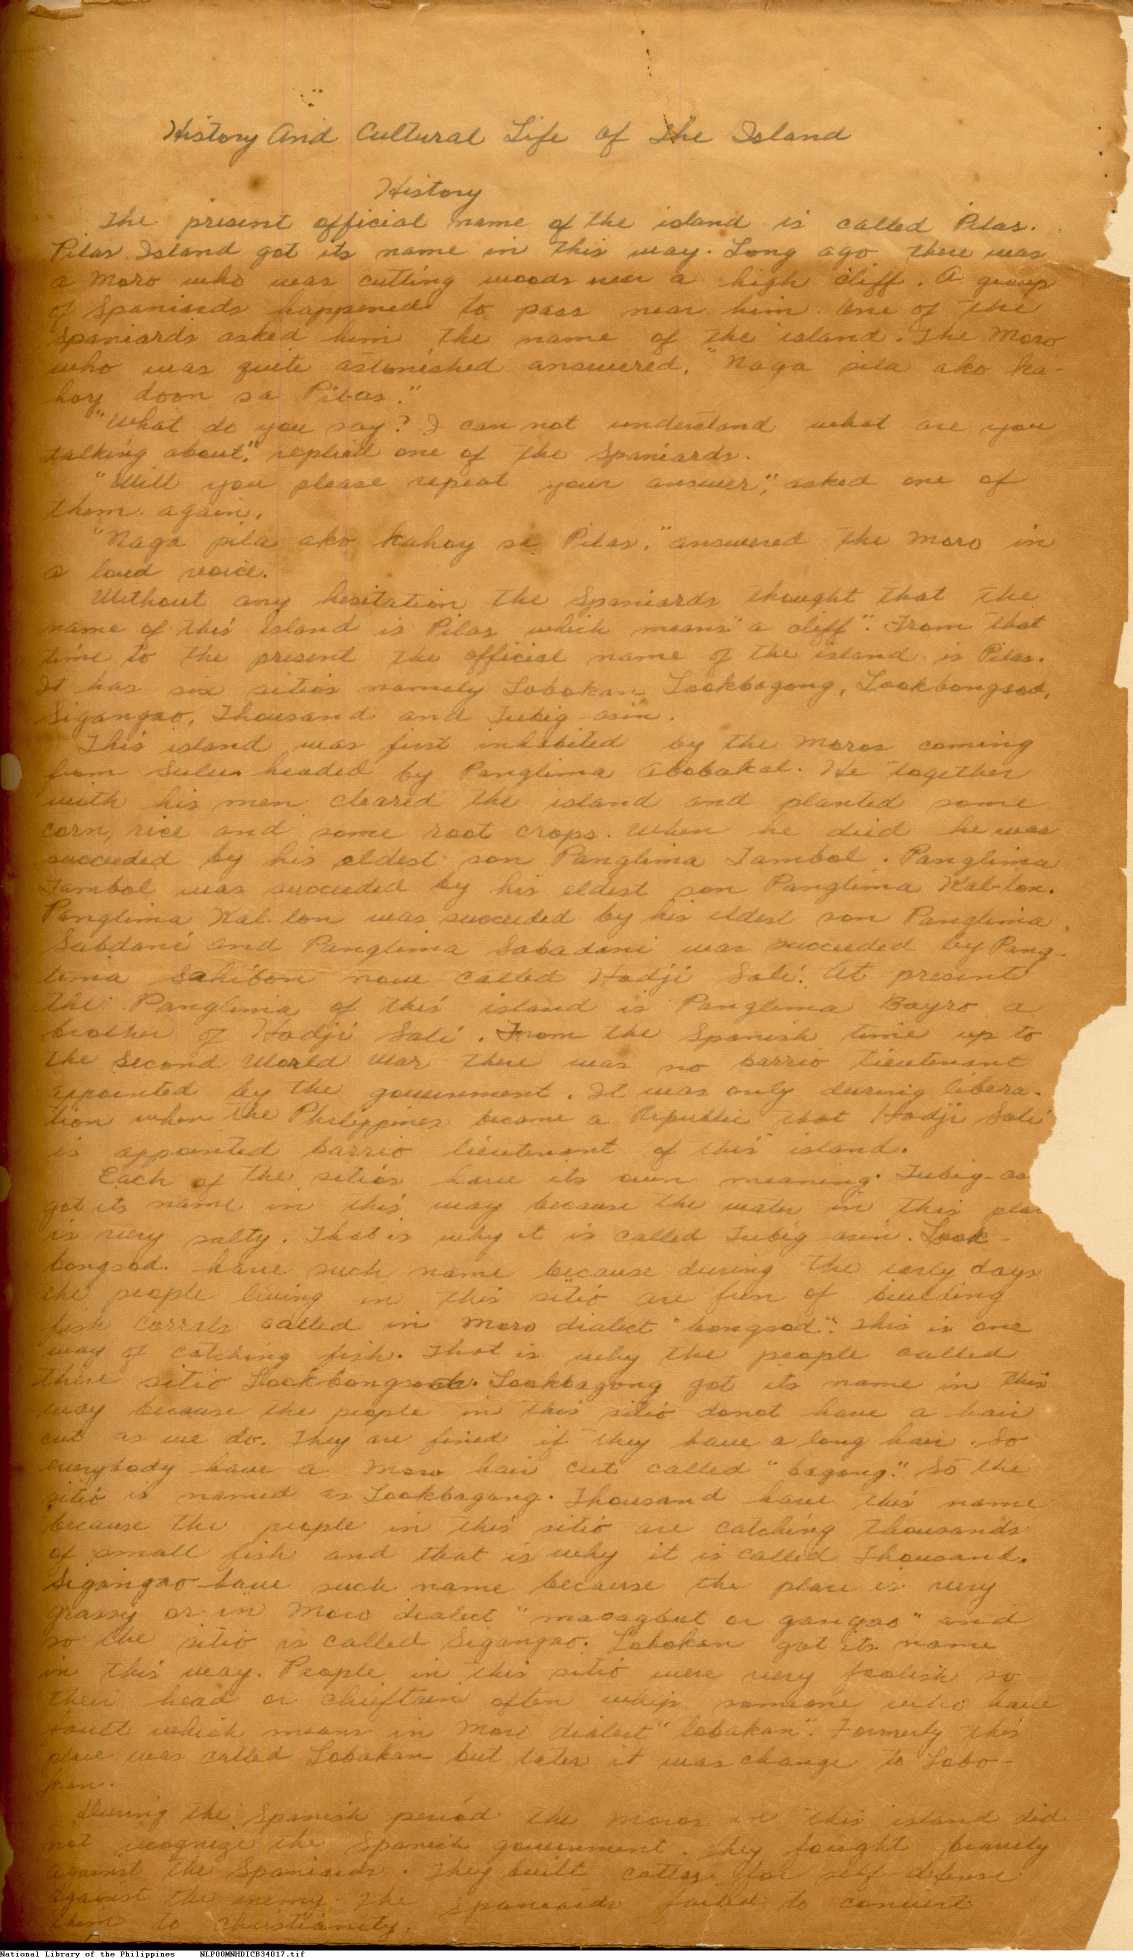 History And Cultural Life of the Island
History
The present official name of the island is called Pilas.
Pilas Island got its name in this way. Long ago there was
a Moro who was cutting woods near a high cliff. A group
of Spaniards happened to pass near him. One of the
Spaniards asked him the name of the island. The Moro
who was quite astonished answered, "Naga pila ako ka-
hoy doon sa Pilas."
"What do you say? I can not understand what are you
talking about," replied one of the Spaniards.
"Will you please repeat your answer", asked one of
them again.
"Naga pila ako kahoy sa Pilas," answered the Moro in
a loud voice.
Without any hesitation the Spaniards thought that the
name of this Island is Pilas which means "a cleff". From that
time to the present the official name of the island is Pilas.
It has six sitios namely Lobokan, Lookbagong, Lookbongsod,
Sigangao, Thousand and Tubig-asin.
This island was first inhabited by the Moros coming
from Sulu headed by Panglima Abobakal. He together
with his men cleared the island and planted some
corn, rice and some root crops. When he died he was
succeeded by his eldest son Panglima Tambol. Panglima
Tambol was succeeded by his eldest son Panglima Kal-lon.
Panglima Kal-lon was succeeded by his eldest son Panglima
Sabdani and Panglima Sabadani was succeeded by Pang-
lima Sahibon now called Hadji Sali. At present
the Panglima of this island is Panglima Bayro a
brother of Hadji Sali. From the Spanish time up to
the Second World War there was no barrio lieutenant
appointed by the government. It was only during libera-
tion when the Philippines became a Republic that Hadji Sali
is appointed barrio lieutenant of this island.
Each of the sitios have its own meaning. Tubig-as
got its name in this way because the water in this plac
is very salty. That is why it is called Tubig asin. Look-
bongsod have such name because during the early days
the people living in this sitio are fun of building
fish corrals called in Moro dialect "bongsod". This is one
way of catching fish. That is why the people called
this sitio Lookbongsod. Lookbagong got its name in this
way because the people in this sitio donot have a hair
cut as we do. They are fined if they have a long hair. So
everybody have a Moro hair cut called "bagong." So the
sitio is named as Lookbagong. Thousand have this name
because the people in this sitio are catching thousands
of small fish and that is why it is called Thousand.
Sigangao have such name because the place is very
grassy or in Moro dialect "masagbut or gangao" and
so the sitio is called Sigangao. Lobokan got its name
in this way. People in this sitio were very foolish so
their head or chieftain often whip someone who have
fault which means in Moro dialect "lobakan". Formerly this
place was called Lobakan but later it was change to Lobo-
kan.
During the Spanish period the Moros in this island did
not recognize the Spanish government. They fought bravely
against the Spaniards. They built cottas for self defense
against the enemy. The Spaniards failed to convert
them to christianity.
National Library of the Philippines NLPOOMNHDICB34017.tif